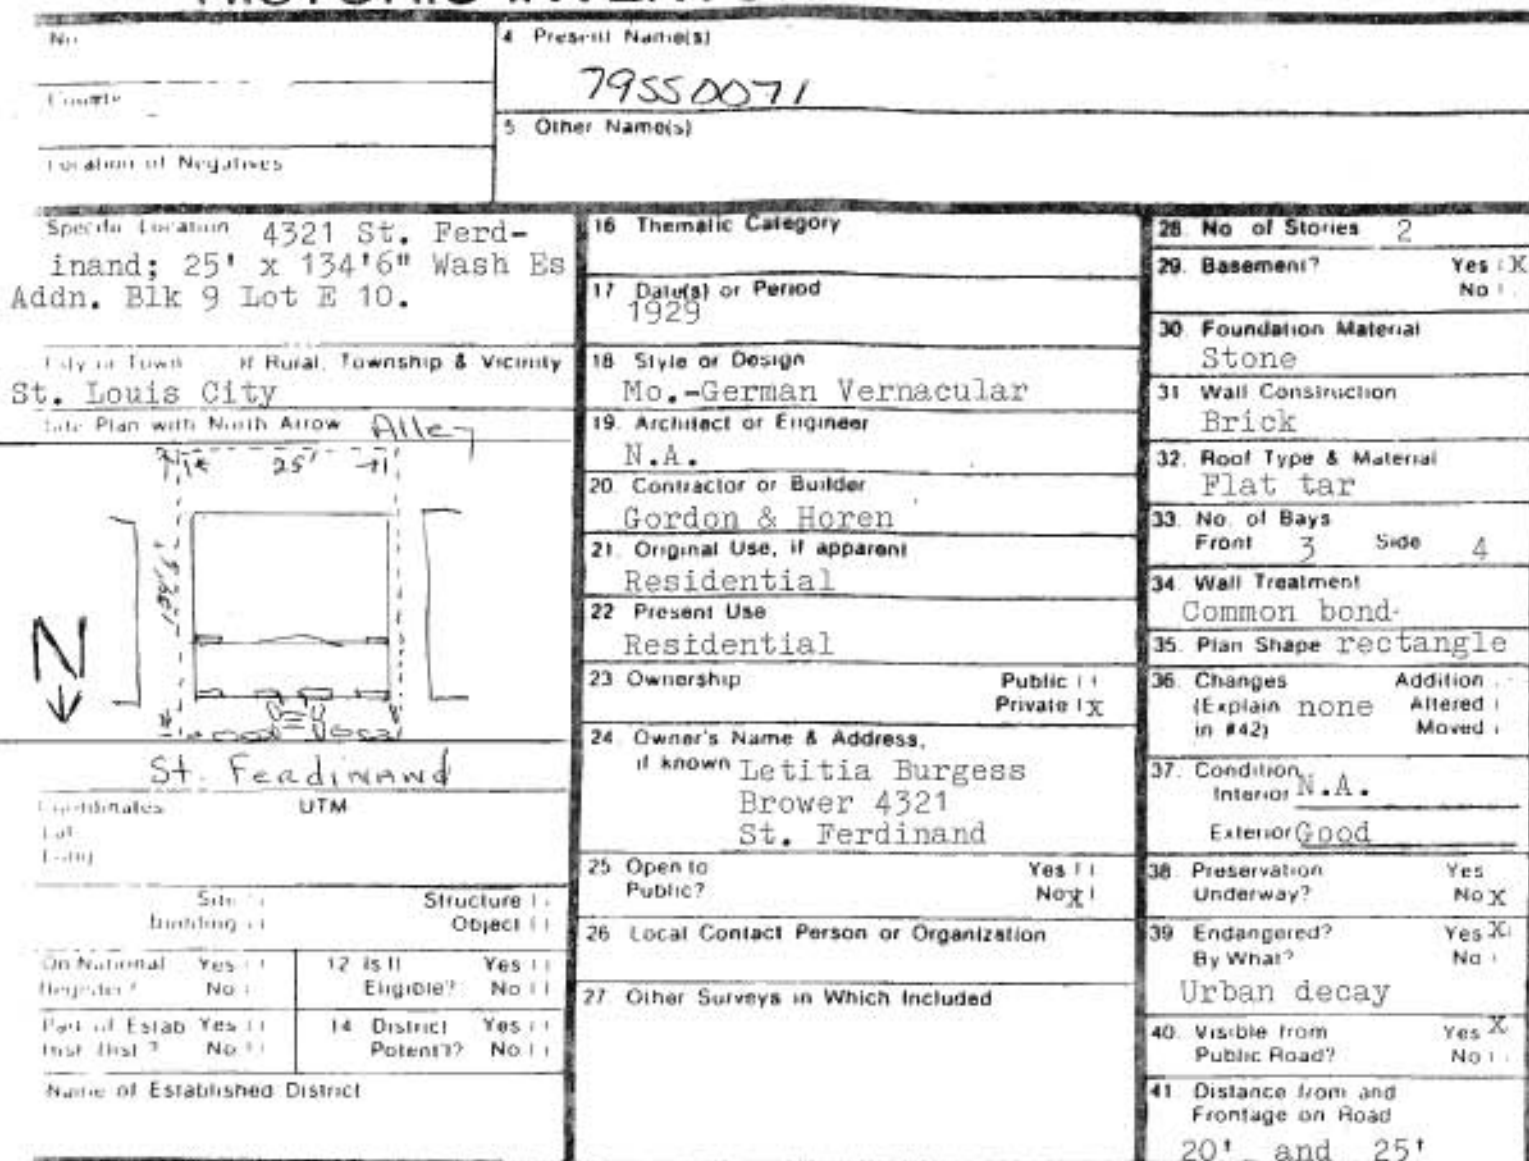 No.
4 Present Name(s)
79550071
County
5 Other Name(s)
Location of Negatives
Specific Location 4321 St. Ferd-
inand; 25' x 134'6" Wash Es
Addn. Blk 9 Lot E 10.
City or Town If Rural, Township & Vicinity
St. Louis City
Site Plan with North Arrow Alley
25'
N
St. Ferdinand
Coordinates UTM
Lat
Long
Site Structure
Building Object
On National Register? Yes No
12 Is It Eligible? Yes No
Part of Estab Hist Dist? Yes No
14 District Potent'l? Yes No
Name of Established District
16 Thematic Category
17 Date(s) or Period
1929
18 Style or Design
Mo.-German Vernacular
19. Architect or Engineer
N.A.
20. Contractor or Builder
Gordon & Horen
21. Original Use, if apparent
Residential
22 Present Use
Residential
23 Ownership Public
Private X
24. Owner's Name & Address,
if known Letitia Burgess
Brower 4321
St. Ferdinand
25 Open to Yes
Public? No X
26 Local Contact Person or Organization
27 Other Surveys in Which Included
28. No of Stories 2
29. Basement? Yes X
No
30. Foundation Material
Stone
31 Wall Construction
Brick
32. Roof Type & Material
Flat tar
33. No. of Bays
Front 3 Side 4
34. Wall Treatment
Common bond
35. Plan Shape rectangle
36. Changes Addition
(Explain none Altered
in #42) Moved
37. Condition
Interior N.A.
Exterior Good
38. Preservation Yes
Underway? No X
39 Endangered? Yes X
By What? No
Urban decay
40. Visible from Yes X
Public Road? No
41. Distance from and
Frontage on Road
20' and 25'